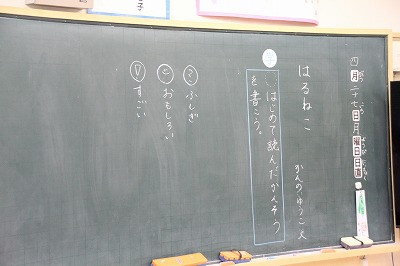 四月二十七日月曜日
はるねこ
かんのゆうこ 文
はじめて読んだかんそう
を書こう。
ふしぎ
おもしろい
すごい